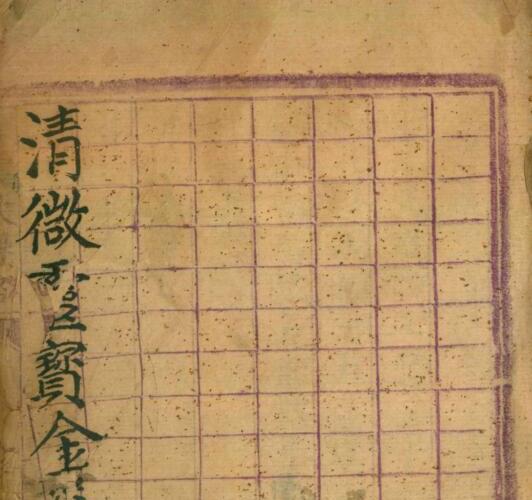 清微寶金